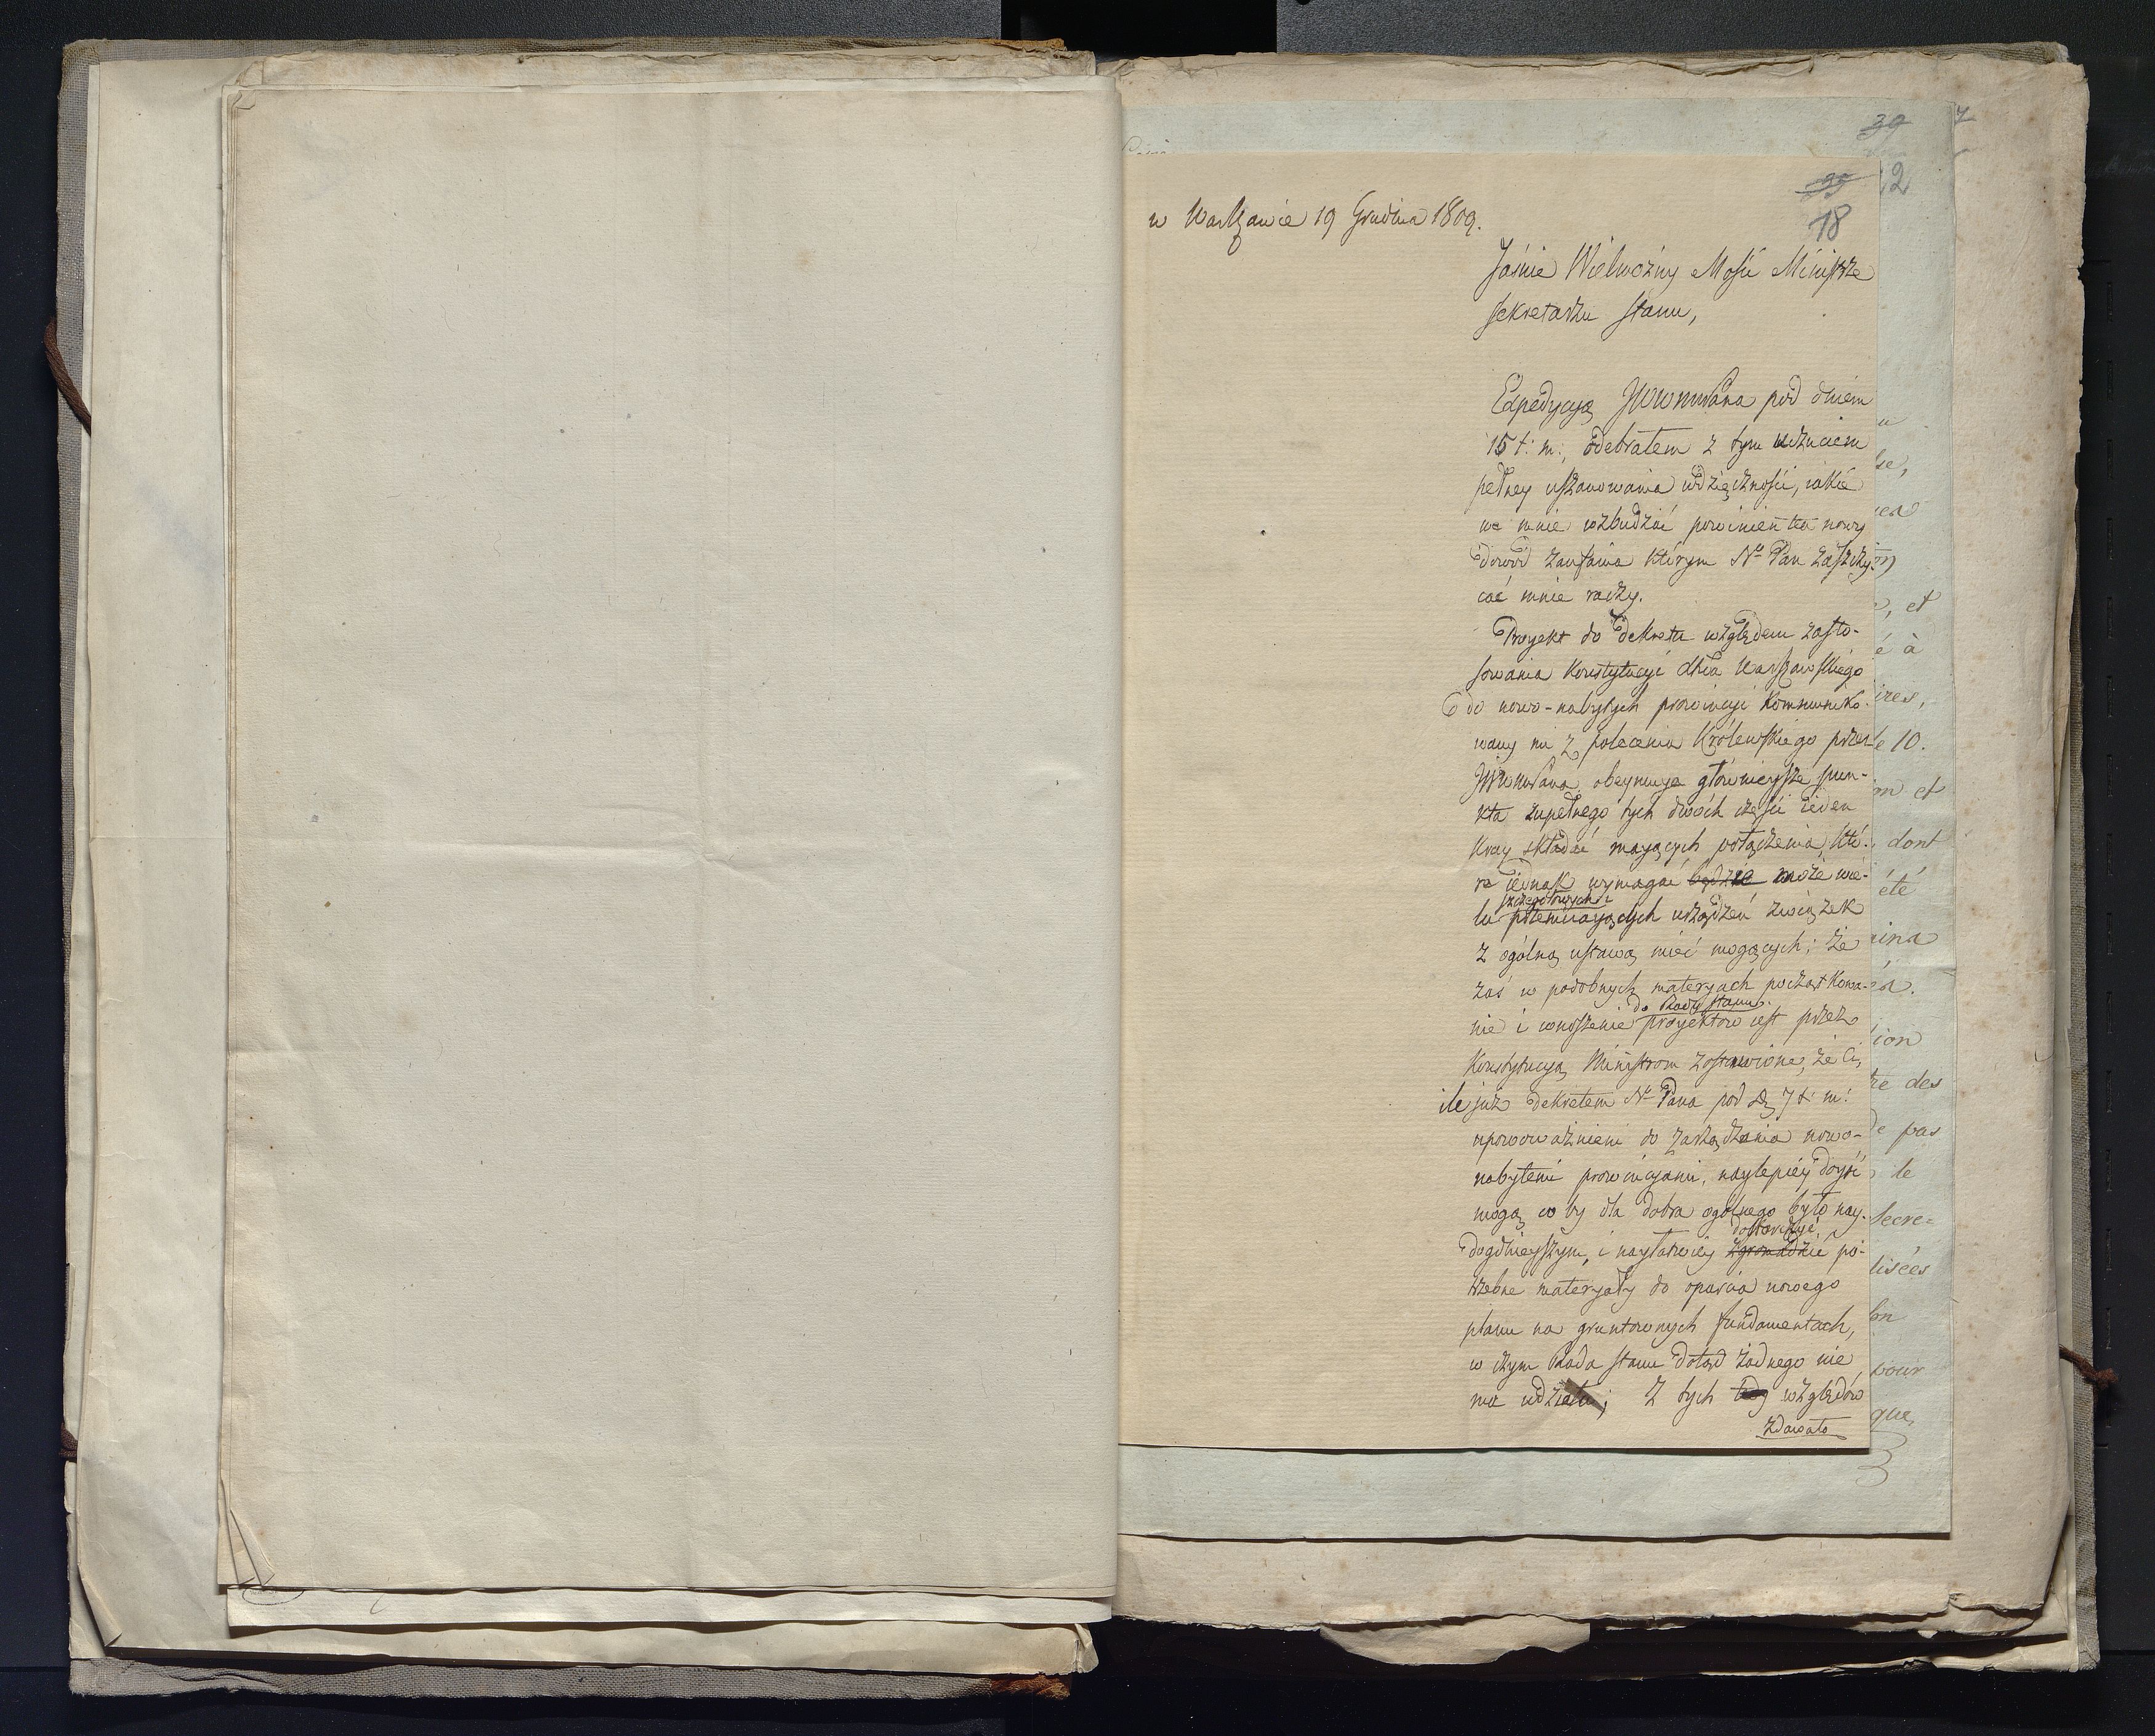 39
7
2
35
18
w Warszawie 19 Grudnia 1809.
Jaśnie Wielmożny Mości Ministrze
Sekretarzu Stanu,
Expedycyą JWWmPana pod dniem
15 t: m:, odebrałem z tym uczuciem
pełney uszanowania wdzięczności, iakie
we mnie wzbudzać powinien ten nowy
dowód zaufania którym N. Pan zaszczy-
cać mnie raczy.
Proyekt do Dekretu względem zasto-
sowania Konstytucyi Xtwa Warszawskiego
do nowo-nabytych prowincyi kommuniko-
wany mi z polecenia Królewskiego przez
JWWmPana obeymuje główneysze pun-
kta zupełnego tych dwóch części ieden
Kray składać maiących połączenia, któ-
re iednak wymagać będzie może wie-
szczegółowych
lu urządzeń związek
z ogólną ustawą mieć mogących; że
zaś w podobnych materyach początkowa-
do Rady Stanu
nie i wnoszenie proyektów iest przez
Konstytucyą Ministrom zostawione, że Ci,
ile już dekretem N. Pana pod d. 7 t: m:
upoważnieni do zarządzania nowo-
nabytemi prowincyami, naylepiéy doyść
mogą co by dla dobra ogólnego było nay-
dostarczyć
dogodnieyszym, i nayłatwiey zgromadzić po-
trzebne materyały do oparcia nowego
planu na gruntownych fundamentach,
w czym Rada Stanu dotąd żadnego nie
ma udziału; Z tych względów
zdawało
se,
, et
é à
ires,
le 10.
m et
dont
été
ion
re des
de pas
le
Secre=
lisées
pour
que,